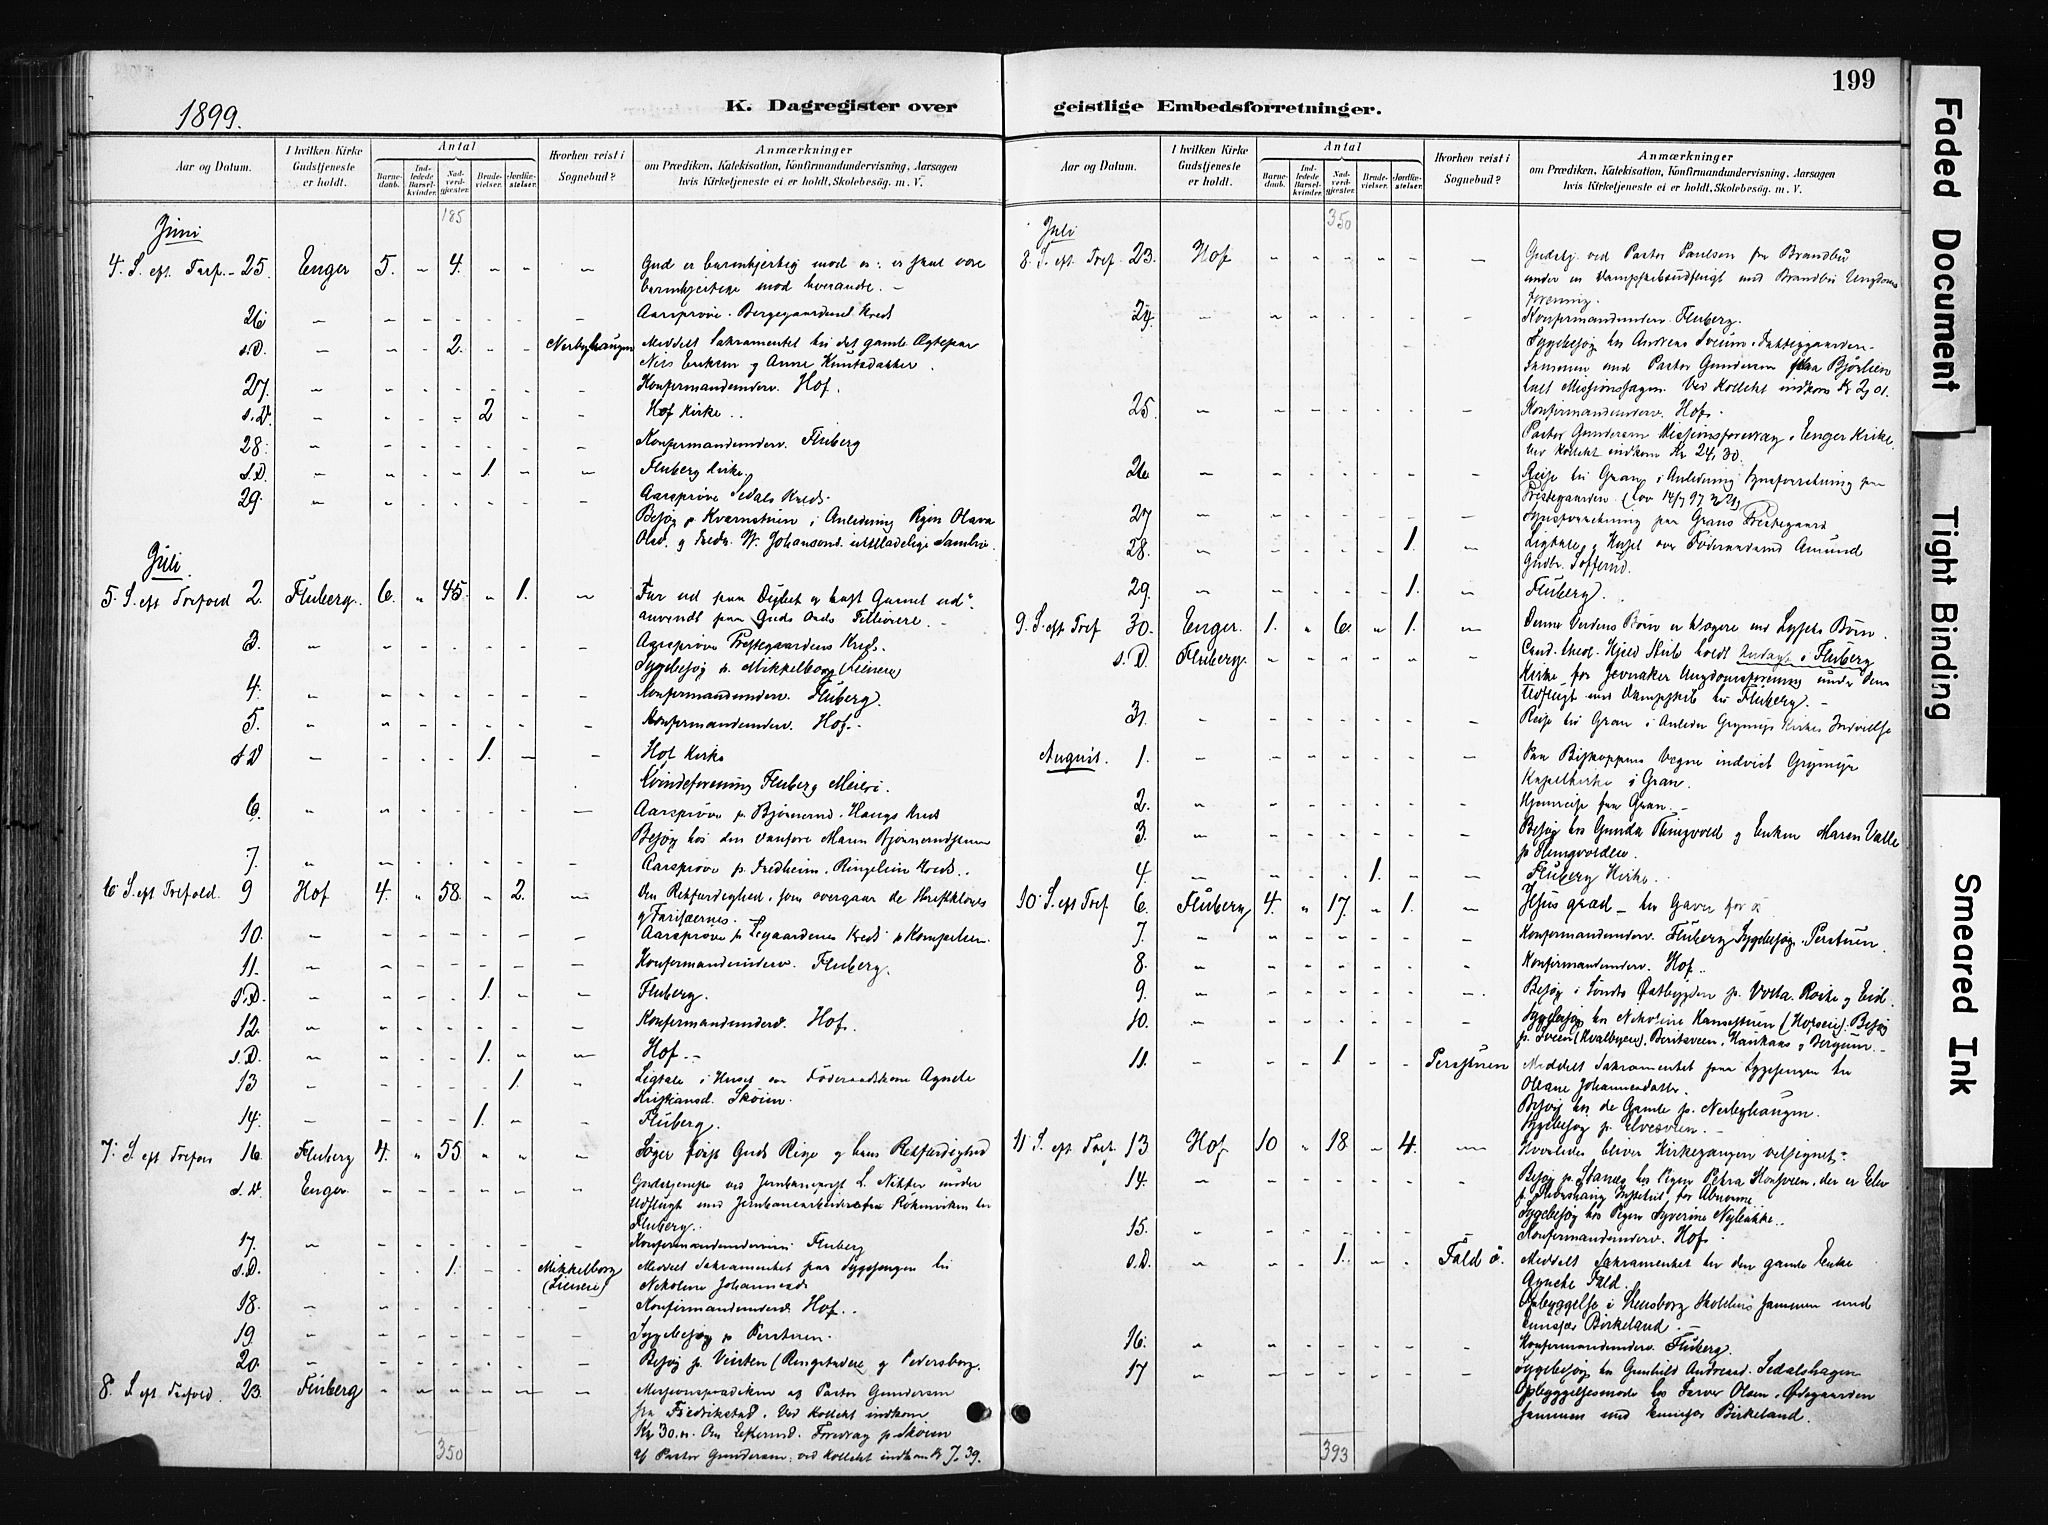 199
1899.
K. Dagregister over geistlige Embedsforretninger.
Aar og Datum.
I hvilken Kirke Gudstjeneste er holdt.
Antal
Barnedaab.
Indledede Barselkvinder.
Nadverdgjester.
Brudevielser.
Jordfæstelser.
Hvorhen reist i Sognebud?
Anmærkninger
om Prædiken, Katekisation, Konfirmandundervisning, Aarsagen
hvis Kirketjeneste ei er holdt, Skolebesøg. m. V.
185
Juni
4. S. eft. Tref. - 25. Enger 5. " 4. Gud er barmhjertig mod os: er skal være
barmhjertige mod hverandre. -
26 Aarsprøve. Bergegaardenes Kreds
s.D. 2. Nerbyhaugen Meddelt Sakramentet til det gamle Ægtepar
Nils Eriksen og Anne Knutsdatter.
27. Konfirmandunderv. Hof.
s.D. 2 Hof Kirke..
28. Konfirmandunderv. Fluberg
s.D. 1. Fluberg Kirke.
29. Aarsprøve Sedals Kreds.
Besøg p. Kvarnstuen i Anledning Pigen Olava
Juli
5. S. eft Trefold 2. Fluberg. 6. " 45. " 1. Far ud paa Dybet og kast Garnet ud".
anvendt paa Guds Ords Tilhørere. -
3. Aarsprøve Prestegaardens Kreds.
Sygebesøg p. Mikkelborg (Lieneie)
4. Konfirmandunderv. Fluberg.
5. Konfirmandunderv. Hof.
s.D 1. Hof Kirke
Kvindeforening Fluberg Meieri.
6. Aarsprøve p. Bjønnerud. Haugs Kreds
Besøg hos den vanføre Maren Bjønnerud
7. Aarsprøve p. Fredheim. Ringelien Kreds..
6 S. eft Trefold. 9 Hof 4. " 58. " 2. Om Retfærdighed, som overgaar de Skriftkloges
og Farisæernes.
10. Aarsprøve p. Kreds p
11. Konfirmandunderv. Fluberg.
s.D. 1. Fluberg.
12 Konfirmandunderv. Hof.
s.D. 1. Hof.
13 1. Ligtale i Huset over Føderaadskone Agnete
Kristiansd. Skøien.
14. 1. Fluberg.
7. S eft Trefol 16. Fluberg 4. " 55 Søger først Guds Rige og hans Retfærdighed
s.D. Enger. Gudstjeneste ved L. under
Udflugt med til
Fluberg..
17. Konfirmandunderv. Fluberg
s.D. 1. Mikkelborg (Lieneie) Meddelt Sakramentet paa Sygesengen til
Nikoline Johannesd
18. Konfirmandunderv. Hof..
19 Sygebesøg p Perstuen.
20. Besøg p. Veisten (Ringstadeie og Pedersborg.
8. S eft Trefold. 23. Fluberg Missionsprædiken af Pastor Gundersen
fra Fredrikstad. Ved Kollekt indkom
Kr 30. Om Efterm. Foredrag p. Skøien
af Pastor Gundersen: ved Kollekt indkom Kr 7.39.
350
Aar og Datum.
I hvilken Kirke Gudstjeneste er holdt.
Antal
Barnedaab.
Indledede Barselkvinder.
Nadverdgjester.
Brudevielser.
Jordfæstelser.
Hvorhen reist i Sognebud?
Anmærkninger
om Prædiken, Katekisation, Konfirmandundervisning, Aarsagen
hvis Kirketjeneste ei er holdt, Skolebesøg. m. V.
350
Juli
8. S. eft. Tref. 23. Hof Gudstj. ved Pastor Paulsen fra Brandbu
under en Dampskibsudflugt med Brandbu Ungdoms
forening.
24. Konfirmandunderv. Fluberg.
Sygebesøg hos Andreas Sveum
Sammen med Pastor Gundersen paa Bjørlien
talt Missionssagen. Ved Kollekt indkom Kr 2,01.
25. Konfirmandunderv. Hof.
Pastor Gundersen Missionsforedrag i Enger Kirke
ved Kollekt indkom Kr. 24,30.
26 Reise til Gran i Anledning Synsforretning paa
Prestegaarden (Lov 14/7 97
27 Synsforretning paa Grans Prestegaard
28. 1. Ligtale i Huset over Føderaadsmd Amund
Gudbr. Sofferud.
29. 1. Fluberg.
9. S. eft Tref 30. Enger. 1. " 6. " 1. Denne Verdens Børn er klogere end Lysets Børn.
s.D. Fluberg. Cand. med. holdt Andagt i Fluberg
Kirke for Jevnaker Ungdomsforening under dens
Udflugt med Dampskib til Fluberg. -
31. Reise til Gran i Anledn Grymyr Kirkes Indvielse
August. 1. Paa Biskoppens Vegne indviet Grymyr
Kapelkirke i Gran.
2. Hjemreise fra Gran. -
3. Besøg hos Gunda Flingvold og Enken Maren Valle
p. Flingvoldeie.
4. 1. Fluberg Kirke.
10. S. eft Tref. 6. Fluberg 4. " 17. " 1. Jesus græd - Gaver for
7. Konfirmandunderv. Fluberg Sygebesøg. Perstuen.
8. Konfirmandunderv. Hof..
9. Besøg i Søndre Østbygden p.
10. Sygebesøg hos Nikoline Hansstuen (Hofseie). Besøg
p. Sveen (Kvalbyeie), Beritsveen, Haukaas og Bergum. -
11. 1 Perstuen Meddelt Sakramentet paa Sygesengen til
Oleane Johannesdatter.
Besøg hos de Gamle p. Nerbyhaugen.
Sygebesøg p. Elvesveen. -
11 S. eft Tref. 13 Hof 10 " 18 - 4. Hvorledes bliver Kirkegangen velsignet?
14. Besøg p. hos Pigen Petra der er Elev
Institut for Abnorme.
Sygebesøg hos Pigen Syverine
15. Konfirmandunderv. Hof
s.D. 1. Fald ö. Meddelt Sakramentet til den gamle Enke
Agnete Fald.
Opbyggelse i Steensborg Skolehus sammen med
Emissær Birkeland. -
16. Konfirmandunderv. Fluberg.
17 Sygebesøg hos Gunhild Andreasd. Sedalshagen
Opbyggelsesmøde hos Farver Olsen. Ødegaarden
sammen med Emissær Birkeland.
393
Faded Document
Tight Binding
Smeared Ink